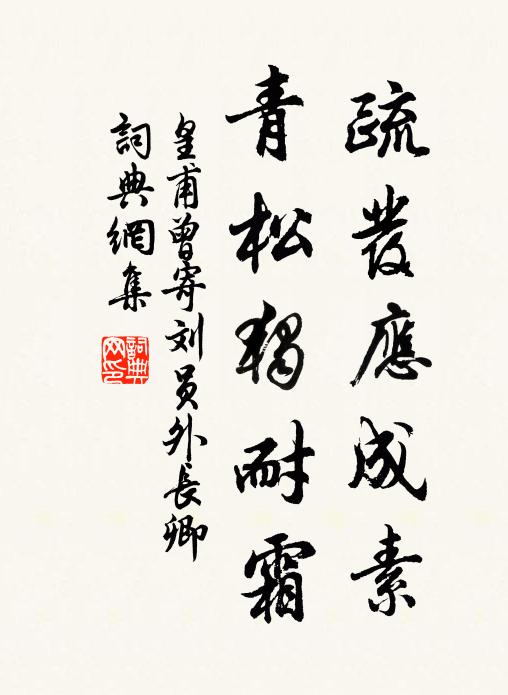 疏發應成素
青松獨耐霜
皇甫曾寄刘員外長卿
詞典網集
詞典网印